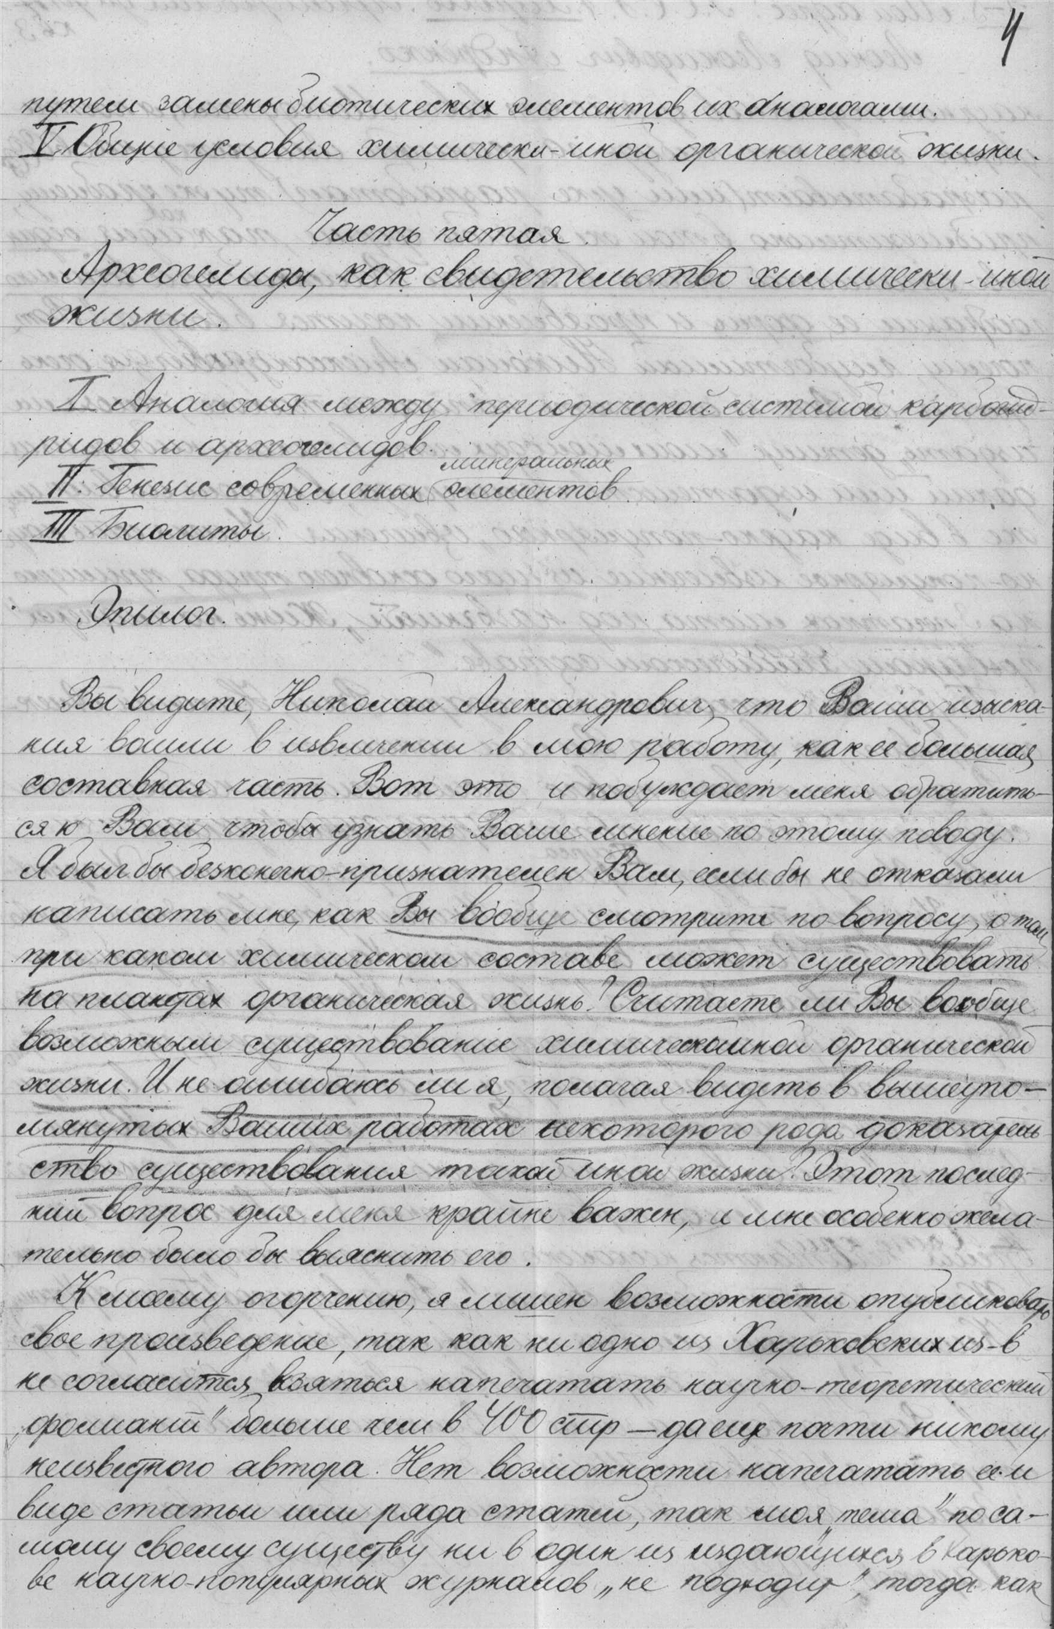 4
путем замены биотических элементов их аналогами.
V Общие условия химически-иной органической жизни.
Часть пятая.
Археогелиды, как свидетельство химически-иной
жизни.
I Аналогия между периодической системой карбогид-
ридов и археогелидов.
минеральных
II. Генезис современных элементов.
III Биолиты.
Эпилог.
Вы видите, Николай Александрович, что Ваши изыска-
ния вошли в извлечении в мою работу, как ее большая
составная часть. Вот это и побуждает меня обратить-
ся к Вам чтобы узнать Ваше мнение по этому поводу.
Я был бы безконечно-признателен Вам, если бы не отказали
написать мне, как Вы вообще смотрите по вопросу, о том
при каком химическом составе может существовать
на планетах органическая жизнь? Считаете ли Вы вообще
возможным существование химическииной органической
жизни. И не ошибаюсь ли я, полагая видеть в вышеупо-
мянутых Ваших работах некоторого рода доказатель
ство существования такой иной жизни? Этот послед-
ний вопрос для меня крайне важен, и мне особенно жела-
тельно было бы выяснить его.
К моему огорчению, я лишен возможности опубликовать
свое произведение, так как ни одно из Харьковских из-в
не согласится взяться напечатать научно-теоретический
„фолиант" больше чем в 400 стр — да еще почти никому
неизвестного автора. Нет возможности напечатать ее и
виде статьи или ряда статей, так моя „тема" по са-
мому своему существу ни в один из издающихся в Харько-
ве научно-популярных журналов „не подходит", тогда как